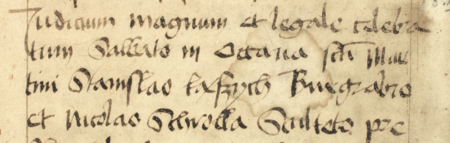 Iudicium magnum et legale celebra
tum Sabbato in Octava scti Mar
tini Stanislao Burgrabio
et Nicolao Schrolla Sculteto pre